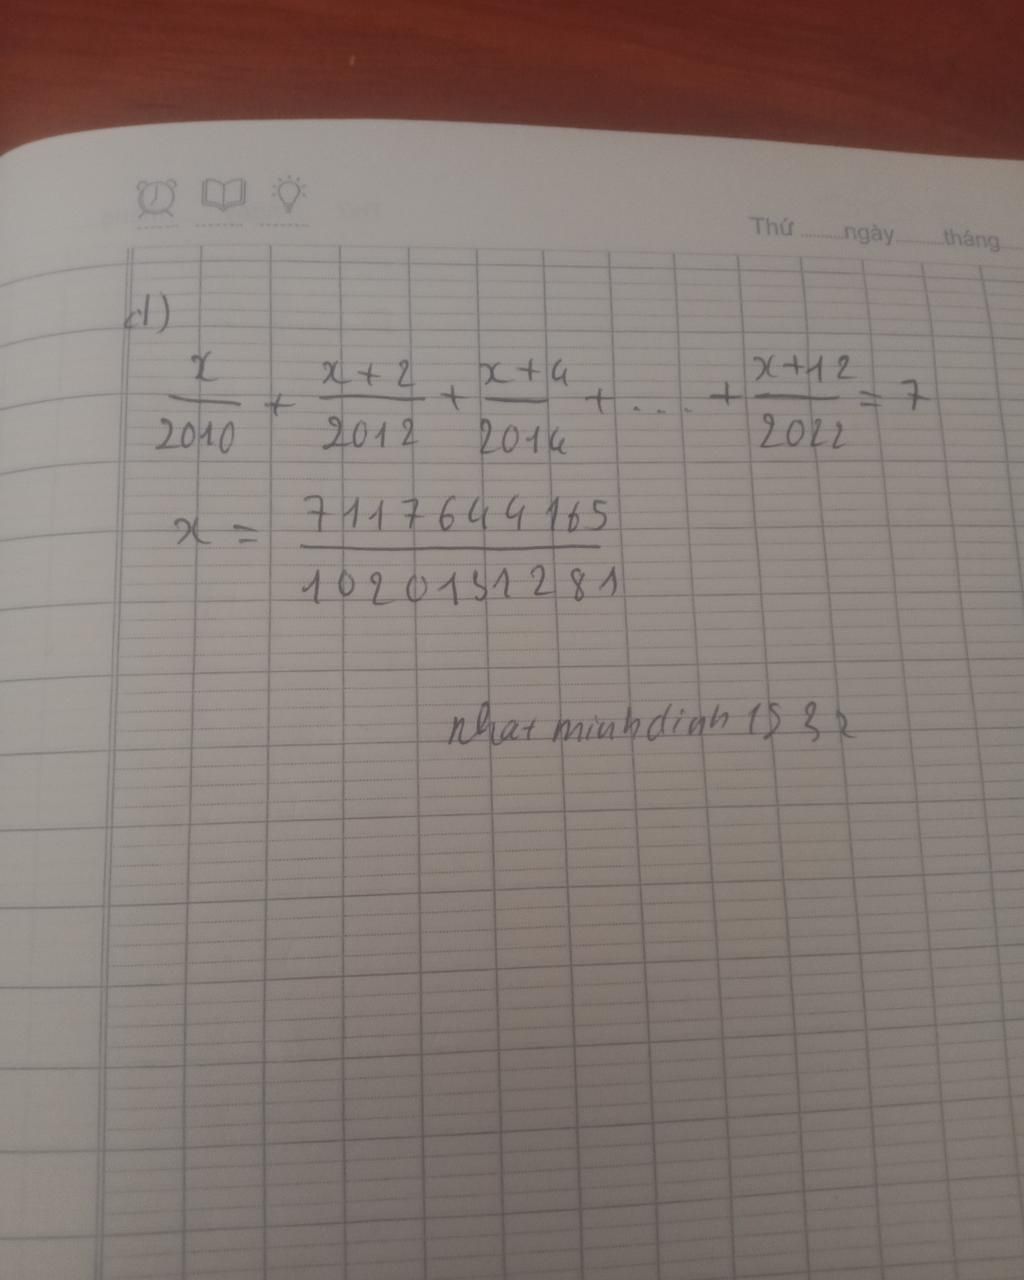 Thứ ........ngày........tháng
d)
x/2010 + x+2/2012 + x+4/2014 + .... + x+12/2022 = 7
x = 7117644165/1020131281
nhat minh dinh 15 3 2